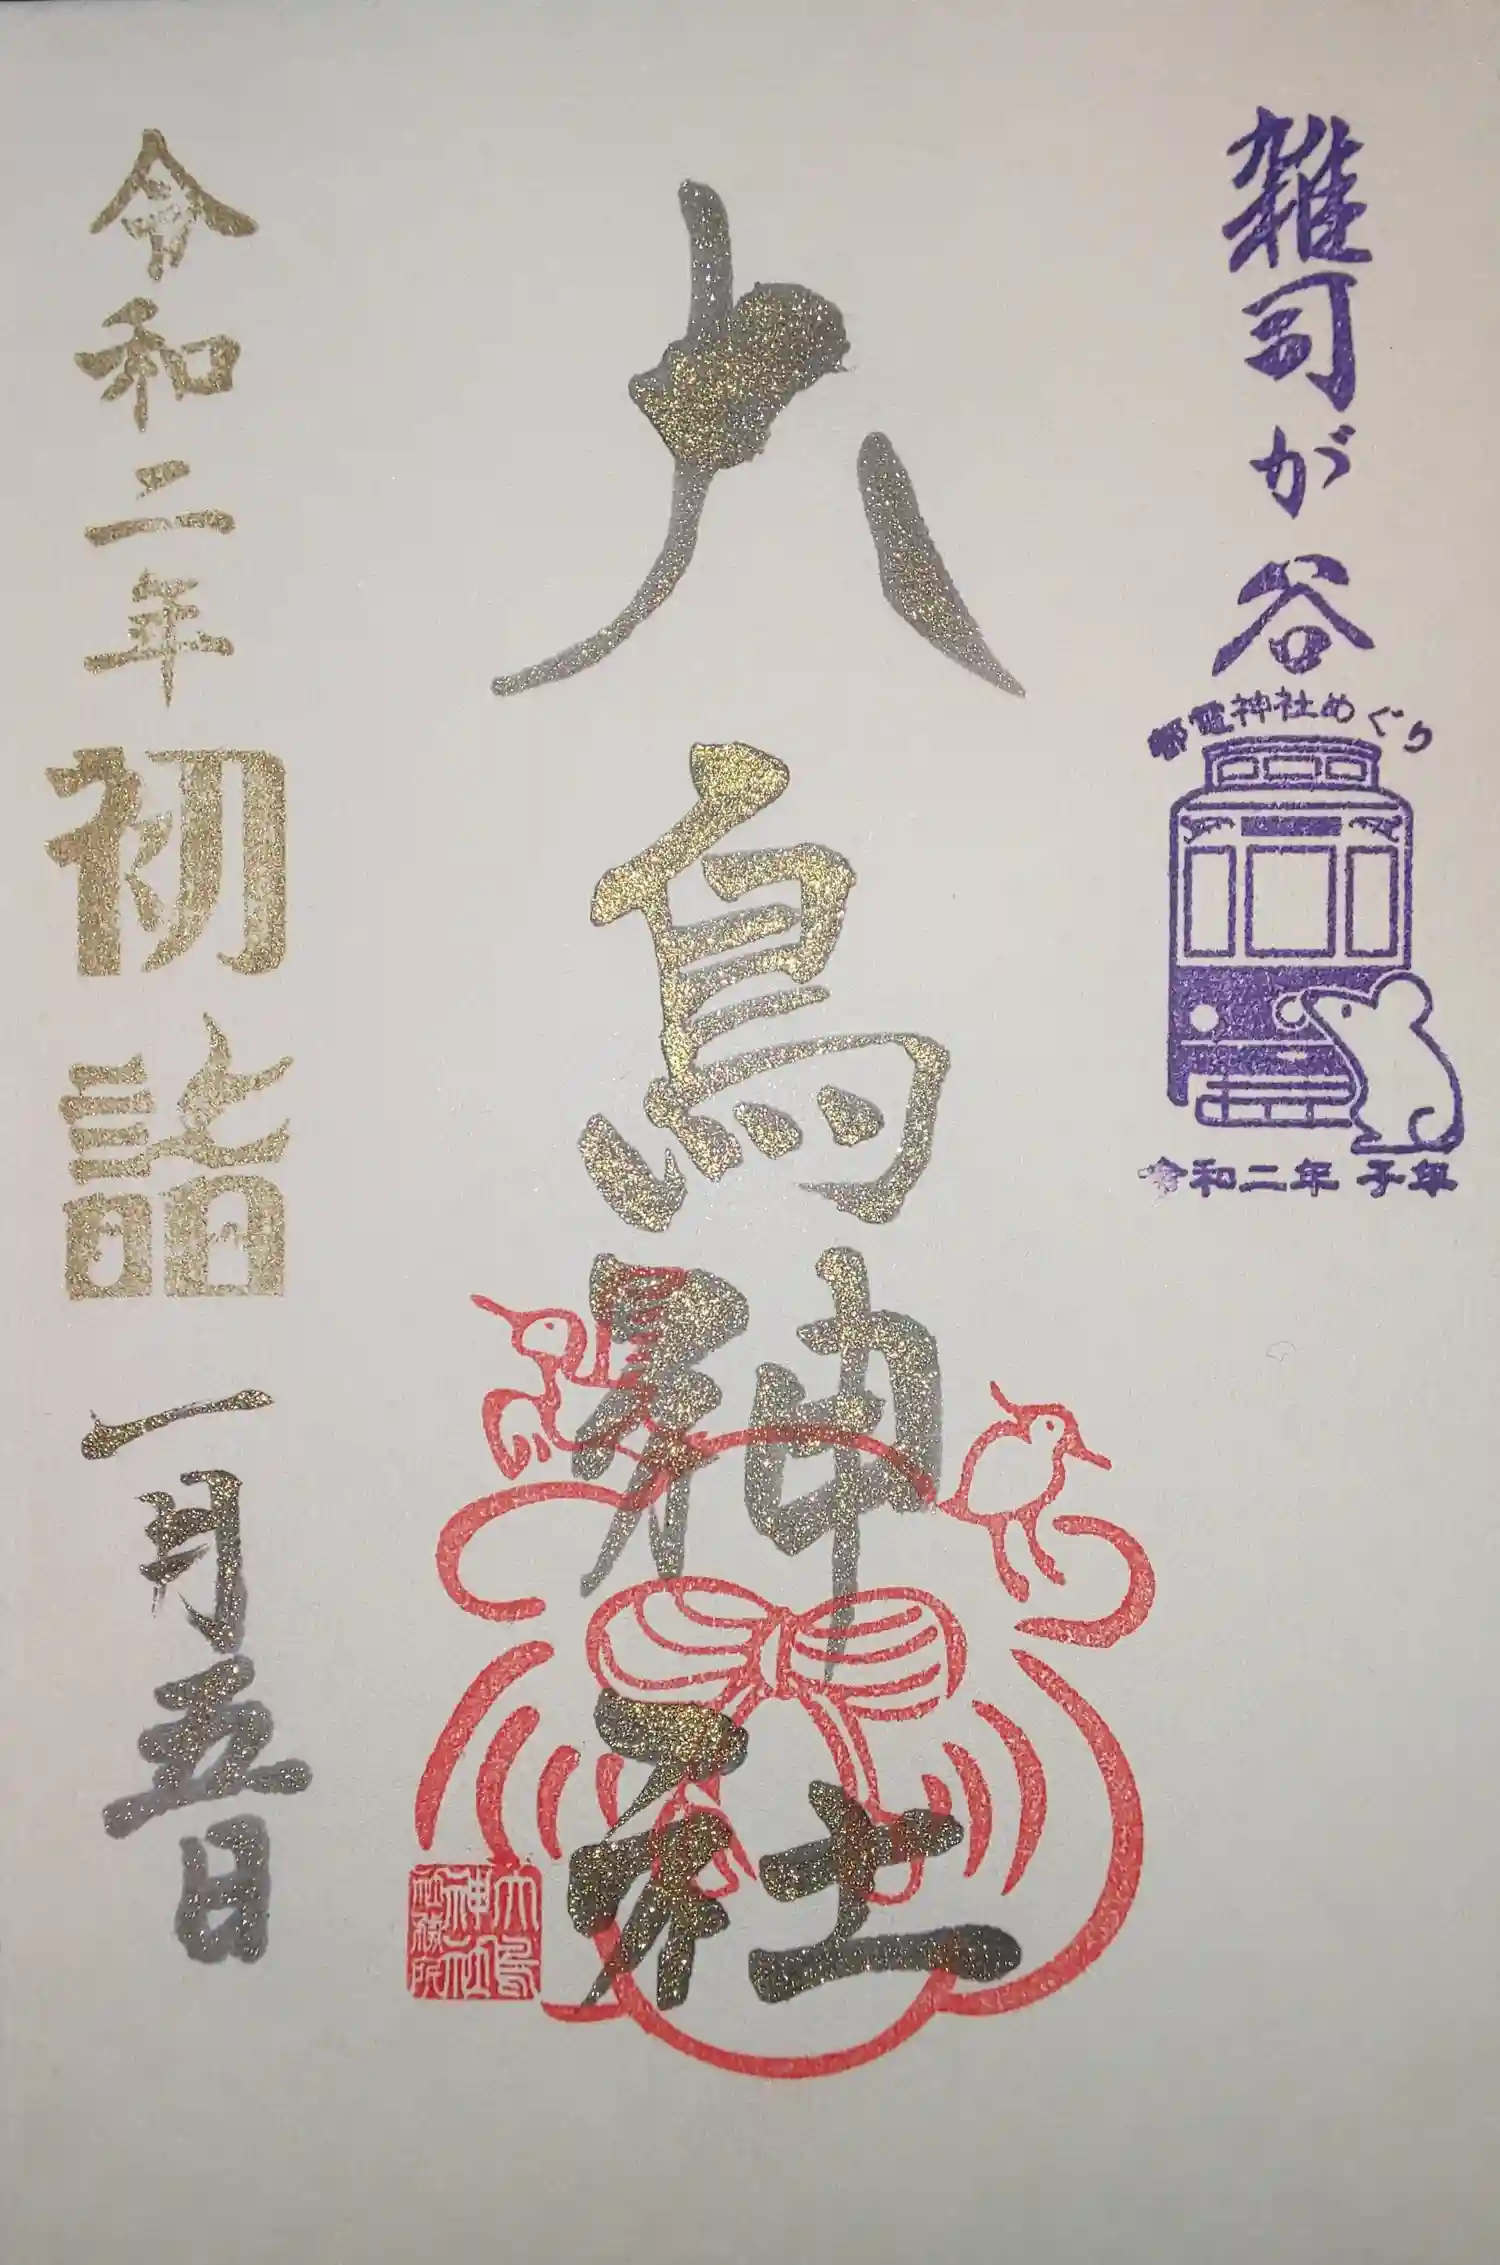 雑司が谷
都電神社めぐり
令和二年 子年
大鳥神社
大鳥
神社
社務所
令和二年
初詣
一月五日